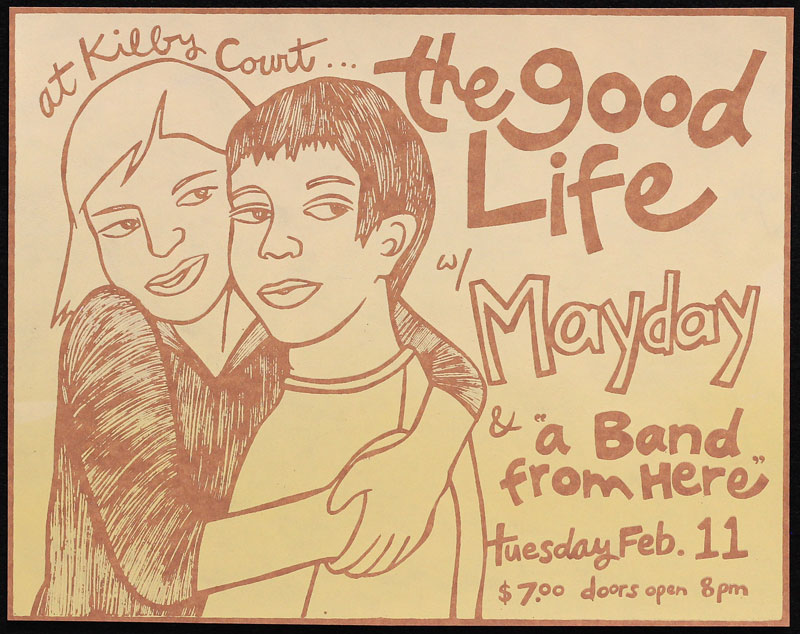 at Kilby Court...
the good
Life
w/
Mayday
& "a Band
from Here"
tuesday Feb. 11
$7.00 doors open 8pm